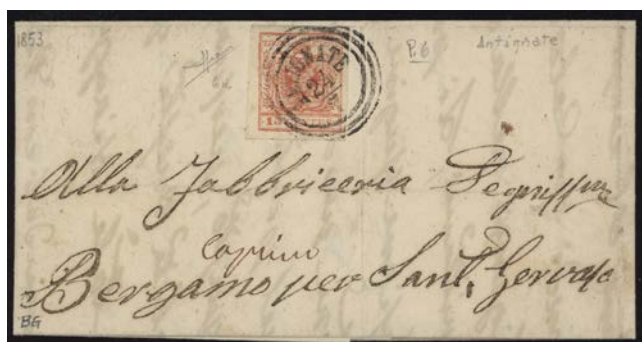 1853
P.6 Antignate
6d
ANTIGNATE
24
15
Alla Fabbriceria
Caprino
Bergamo per Sant. Gervaso
BG